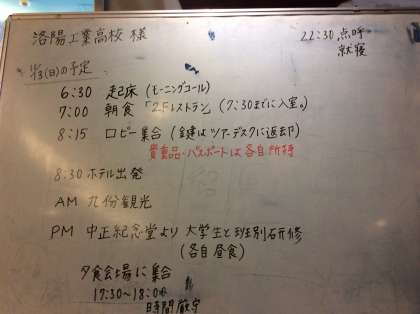 洛陽工業高校 様
22:30 点呼
就寝
11/3(日)の予定
6:30 起床 (モーニングコール)
7:00 朝食「2Fレストラン」(7:30までに入室。)
8:15 ロビー集合 (鍵はツアーデスクに返却)
貴重品・パスポートは各自所持
8:30 ホテル出発
AM 九份観光
PM 中正紀念堂より 大学生と班別研修
(各自昼食)
夕食会場に集合
17:30〜18:00
時間厳守